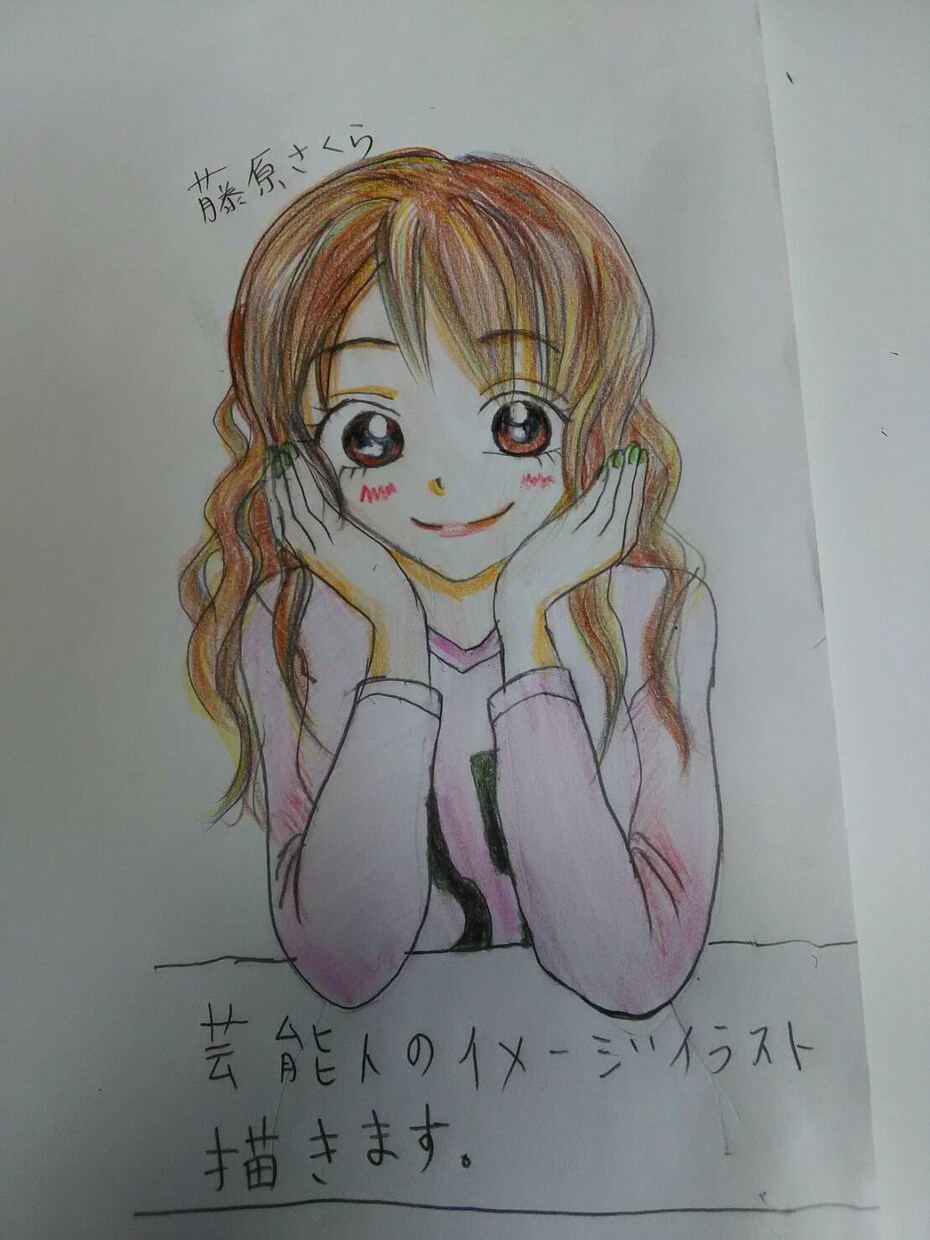 藤原さくら
芸能人のイメージイラスト
描きます。